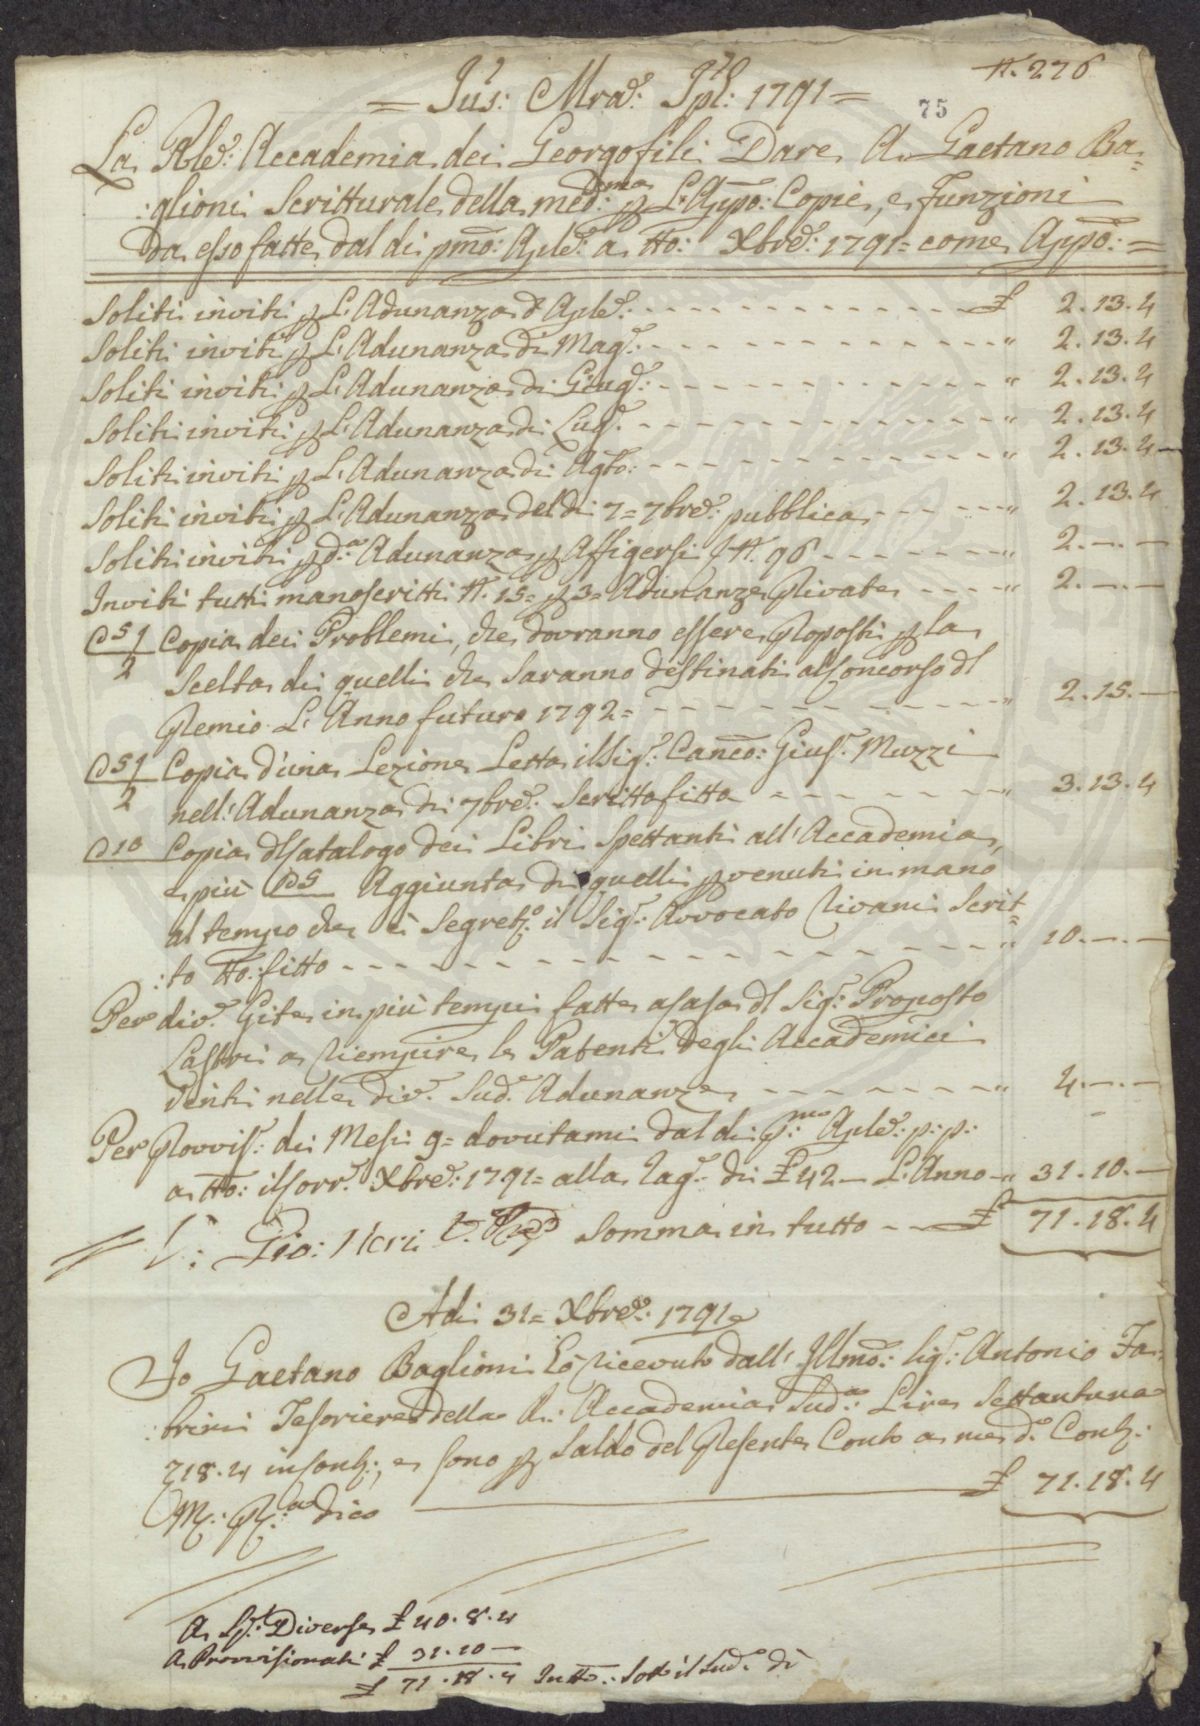 N. 276
= Jus: Mra: Jpl: 1791 =
75
La Rle: Accademia dei Georgofili Dare A Gaetano Ba=
:glioni Scritturale della med:ma p L'Appo: Copie, e Funzioni
da esso fatte dal di pmo: Aple: a tto: Xbre: 1791 = come Appo: =
Soliti inviti p L'Adunanza d'Aple: - - - £ 2.13.4
Soliti inviti p L'Adunanza di Mag: - - - " 2.13.4
Soliti inviti p L'Adunanza di Giug: - - - " 2.13.4
Soliti inviti p L'Adunanza di Lug: - - - " 2.13.4
Soliti inviti p L'Adunanza di Agto: - - - " 2.13.4
Soliti inviti p L'Adunanza del di 7= 7bre: pubblica - - - " 2.13.4
Soliti inviti p d:a Adunanza p Affigersi N. 96 - - - " 2.—.—
Inviti tutti manoscritti N. 15= p 3= Adunanze Private - - - " 2.—.—
C 51/2 Copia dei Problemi, che dovranno essere Proposti p la
Scelta di quelli che Saranno destinati al Concorso dl
Premio L'Anno futuro 1792= - - - " 2.15.—
C 51/2 Copia d'una Lezione Letta il Sig: Canco: Gius: Muzzi
nell'Adunanza di 7bre: Scritto fitto - - - " 3.13.4
C 10 Copia dl Catalogo dei Libri Spettanti all'Accademia,
e più C 5 Aggiunta di quelli pvenuti in mano
al tempo che è Segret: il Sig: Avvocato Rivani Scrit=
:to tto: fitto - - - " 10.—.—
Per div: Gite in più tempi fatte a Casa dl Sig: Proposto
Lastri a riempire le Patenti degli Accademici
vinti nelle div: Sud: Adunanze - - - " 4.—.—
Per Provvis: di Mesi 9= dovutami dal di p:mo Aple: p: p:
a tto: il Corr: Xbre: 1791= alla Rag: di £ 42— L'Anno - " 31.10.—
V: Gio: Neri Somma in tutto - - £ 71.18.4
Adi 31= Xbre: 1791=
Io Gaetano Baglioni ho ricevuto dall'Illmo: Sig: Antonio Fa:
:brini Tesoriere della R: Accademia Sud:a Lire Settantuna
718.4 in Cont:, e sono p Saldo del Presente Conto a me d: Cont:
M: P:a dico £ 71.18.4
A Sp: Diverse £ 40.8.4
A Provvisionati £ 31.10—
£ 71.18.4 Tutto: Sotto il Sud: dì